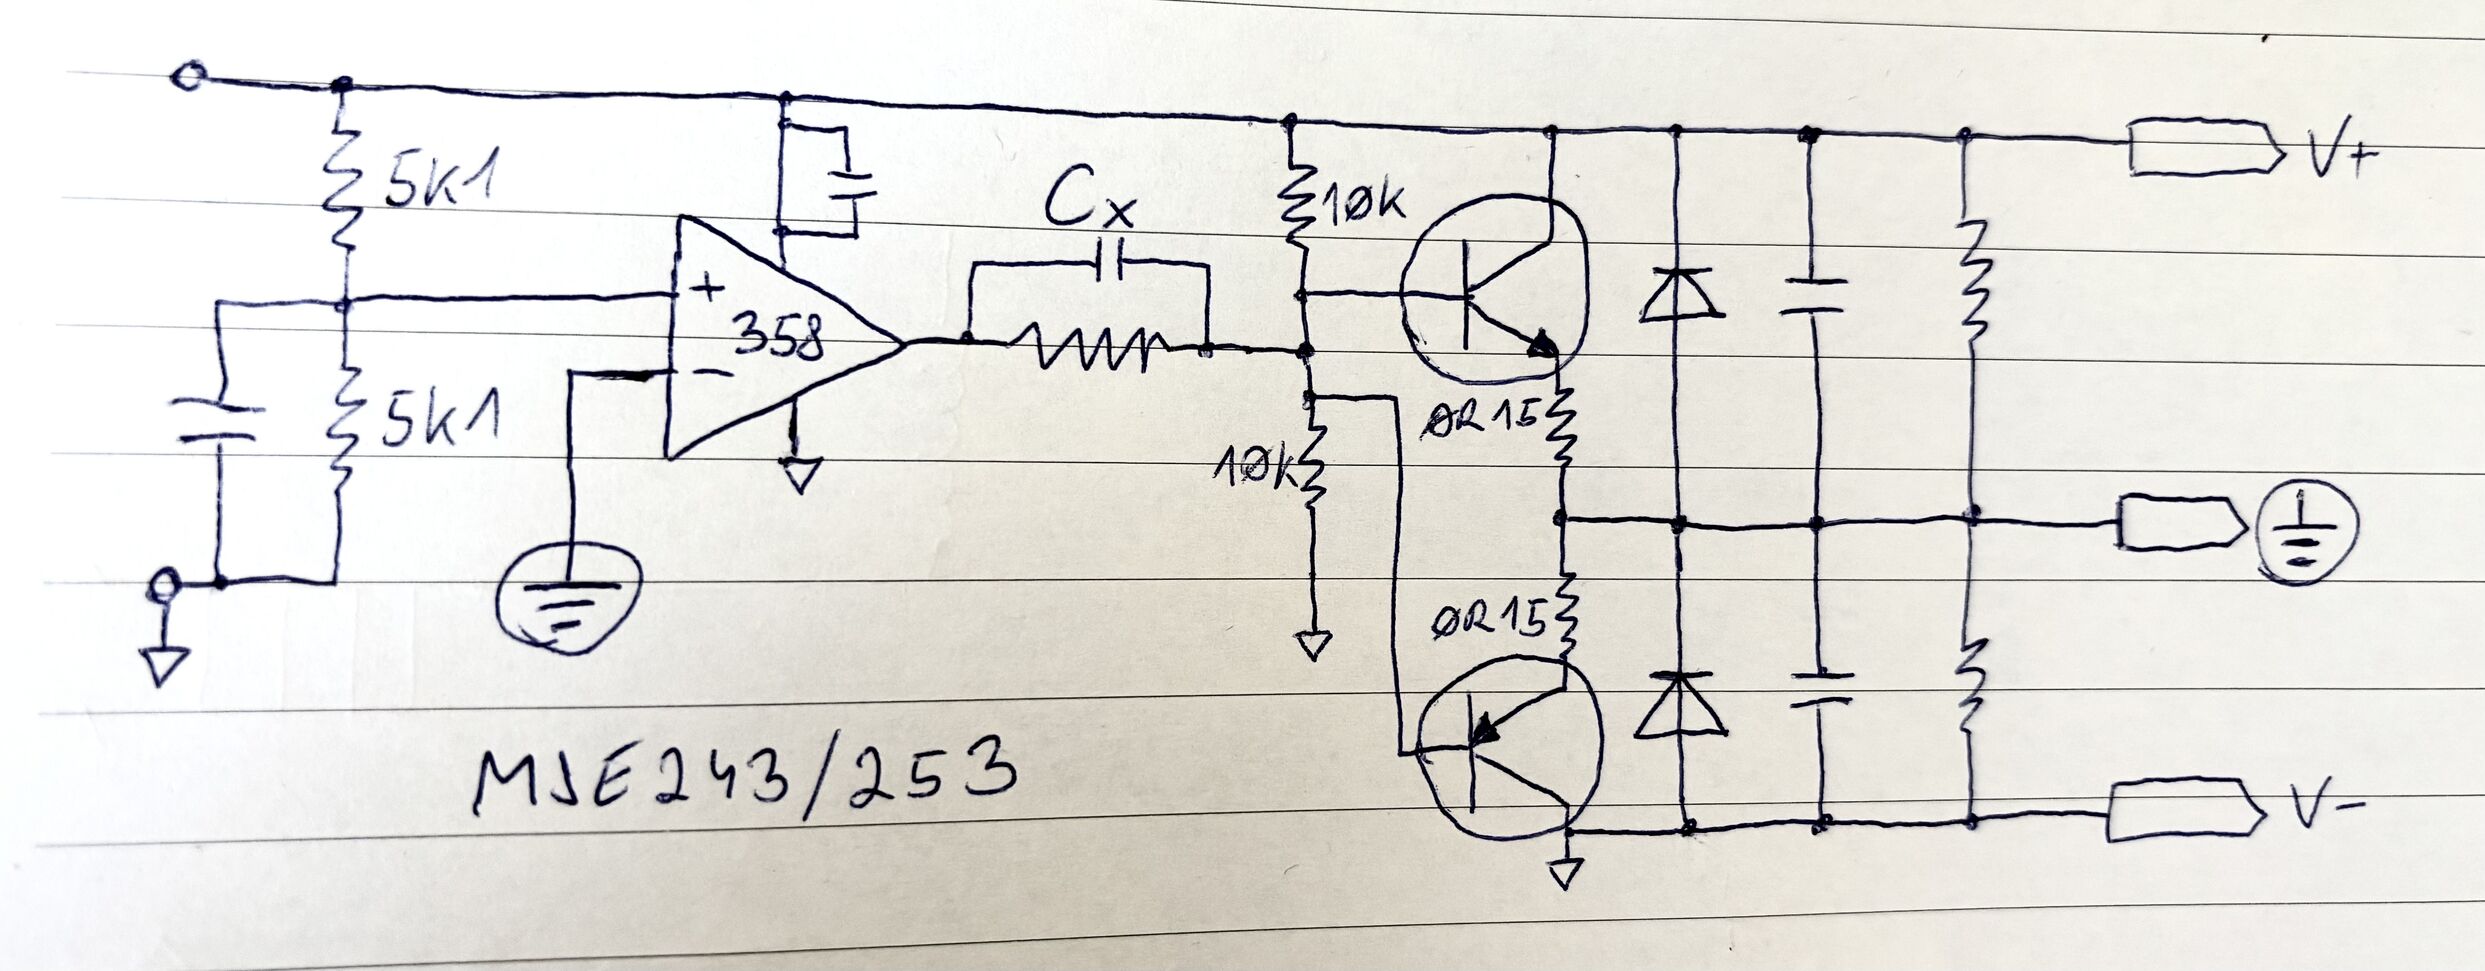 5K1
10K
V+
Cx
+
358
−
5K1
0R15
10K
0R15
MJE243/253
V−